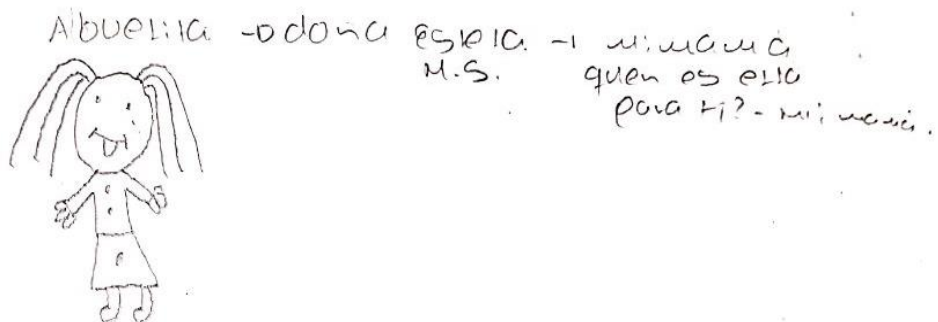 Abuelita → doña Estela → mi mamá
M.S. quen es ella
para ti? - mi mamá.